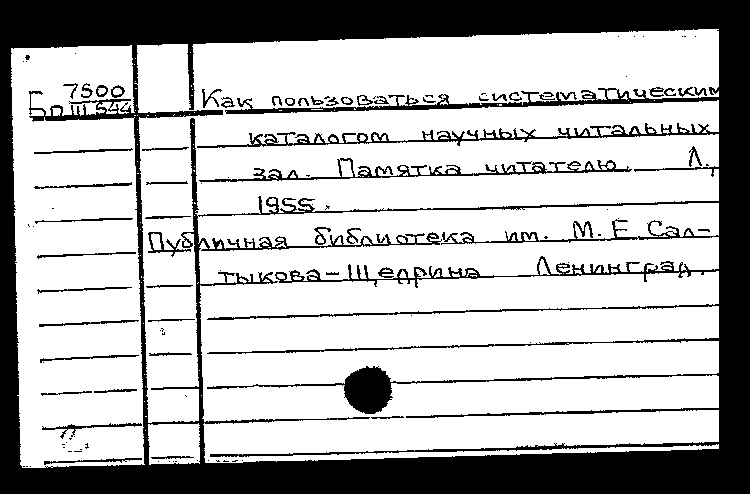 7500
Бп III.544
Как пользоваться систематическим
каталогом научных читальных
зал. Памятка читателю. Л.,
1955.
Публичная библиотека им. М. Е Сал-
тыкова-Щедрина Ленинград.